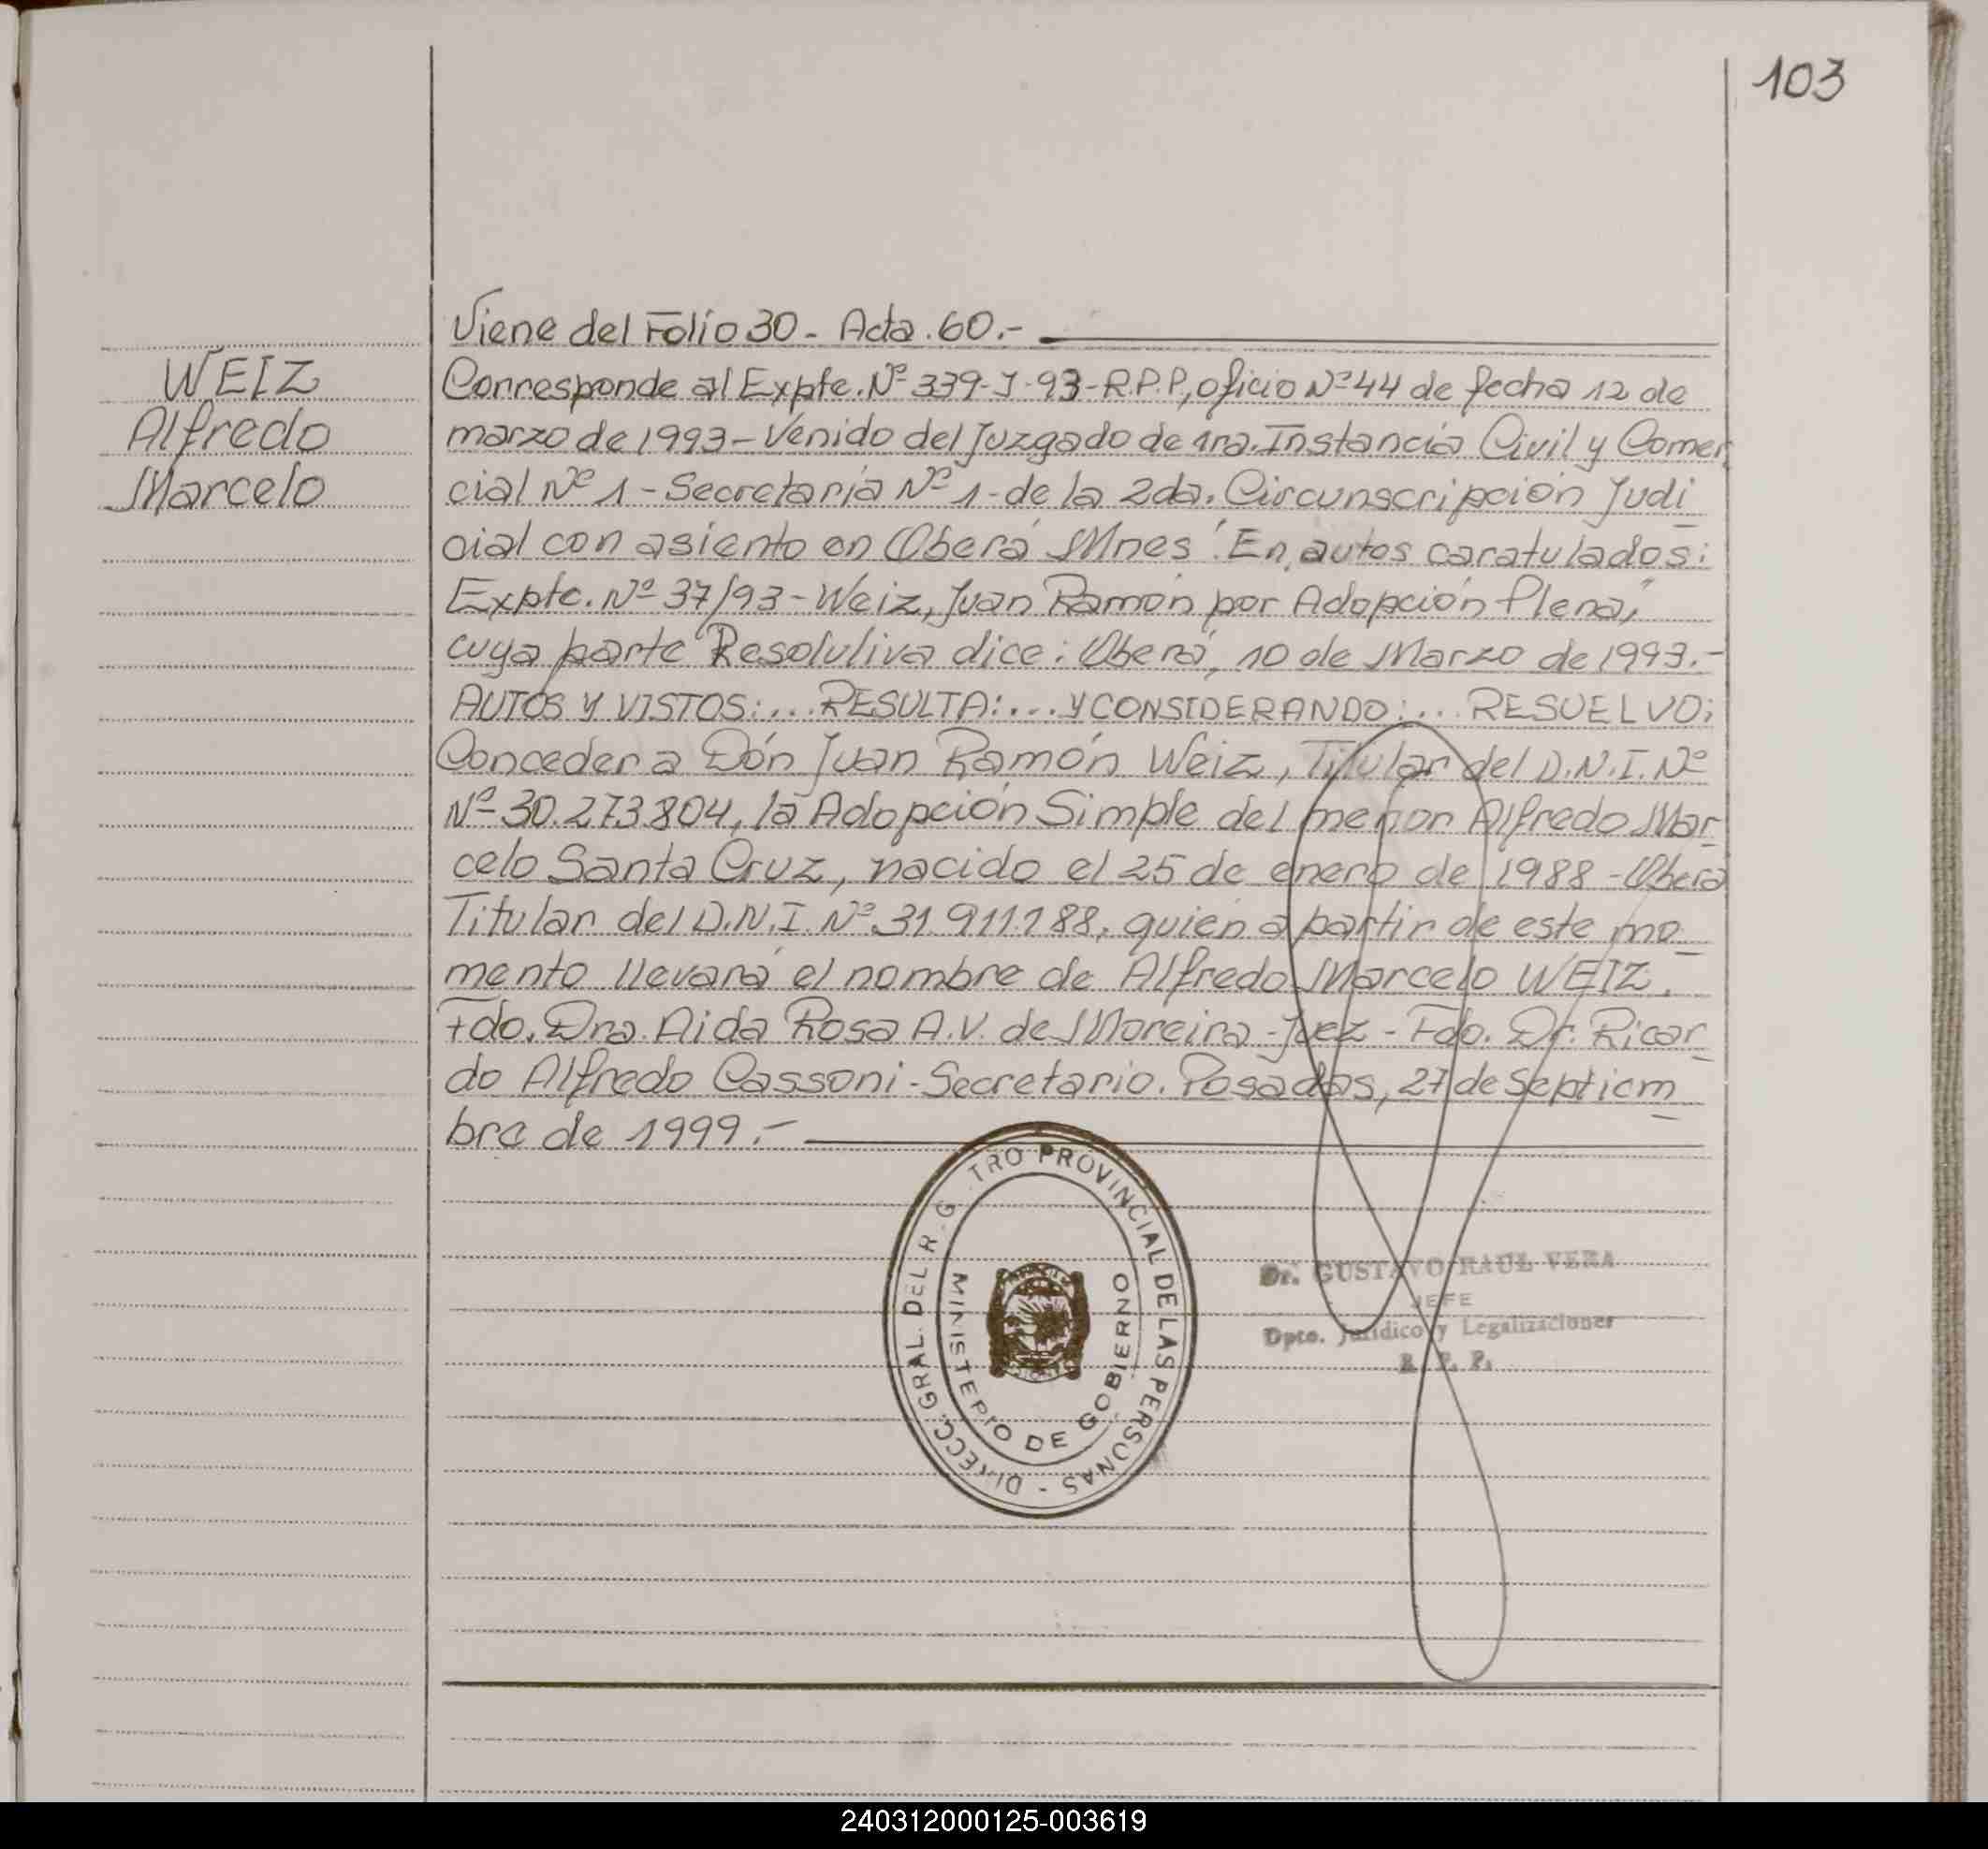 103
WEIZ
Alfredo
Marcelo
Viene del Folio 30 - Acta. 60.-
Corresponde al Expte. Nº 339-J-93-R.P.P, oficio Nº 44 de fecha 12 de
marzo de 1993 - Venido del Juzgado de 1ra. Instancia Civil y Comer
cial Nº 1 - Secretaría Nº 1 - de la 2da. Circunscripción Judi
cial con asiento en Oberá Mnes. "En autos caratulados:
Expte. Nº 37/93 - Weiz, Juan Ramón por Adopción Plena",
cuya parte Resolutiva dice: Oberá, 10 de Marzo de 1993.-
AUTOS Y VISTOS:... RESULTA:... Y CONSIDERANDO:... RESUELVO:
Conceder a Dón Juan Ramón Weiz, Titular del D.N.I. Nº
Nº 30.273.804, la Adopción Simple del menor Alfredo Mar
celo Santa Cruz, nacido el 25 de enero de 1988 - Oberá
Titular del D.N.I. Nº 31.911.188, quien a partir de este mo
mento llevará el nombre de Alfredo Marcelo WEIZ.
Fdo. Dra. Aida Rosa A.V. de Moreira - Juez - Fdo. Dr. Ricar
do Alfredo Cassoni - Secretario. Posadas, 27 de Septiem
bre de 1999.-
DIRECC. GRAL. DEL R G TRO PROVINCIAL DE LAS PERSONAS -
MINISTERIO DE GOBIERNO
Dr. GUSTAVO RAUL VERA
JEFE
Dpto. Jurídico y Legalizaciones
R. P. P.
240312000125-003619